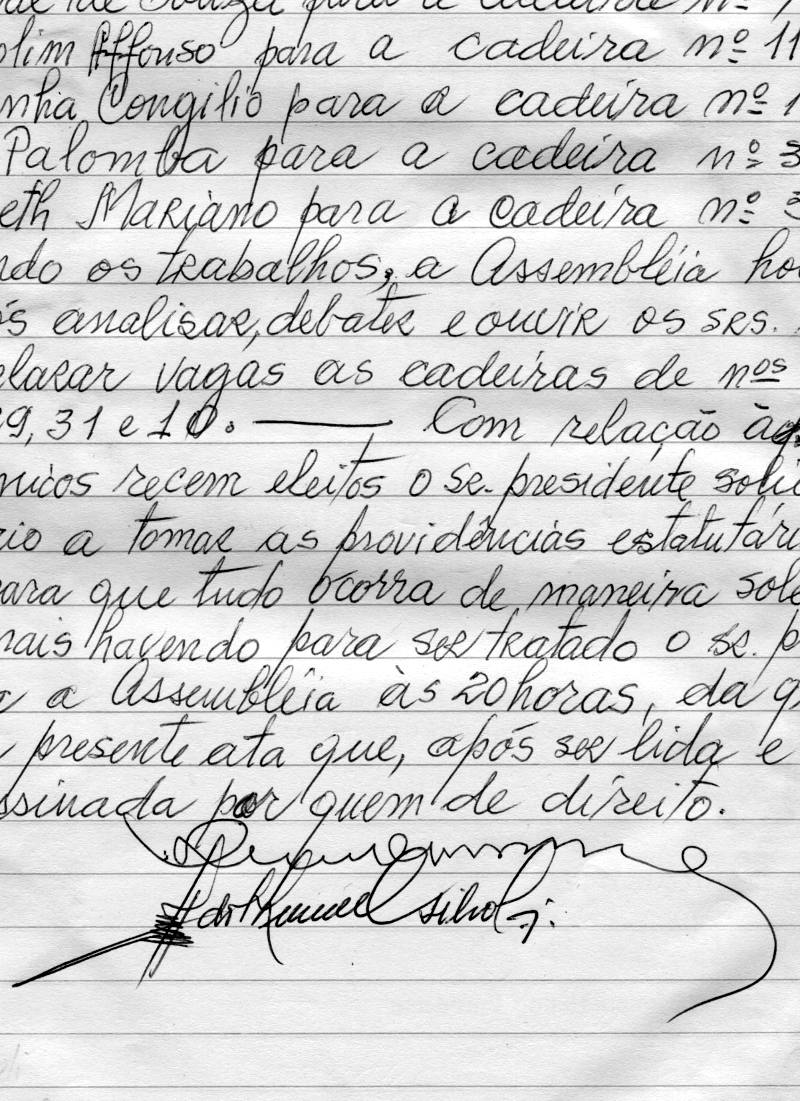 de Souza para a cadeira nº
olim Affonso para a cadeira nº 11
nha Congilio para a cadeira nº 1
Palomba para a cadeira nº 3
eth Mariano para a cadeira nº 3
ndo os trabalhos, a Assembléia hou
ós analisar, debater e ouvir os srs.
elarar vagas as cadeiras de nos
9, 31 e 10. — Com relação àq
micos recem eleitos o sr. presidente solic
rio a tomar as providências estatutári
ara que tudo ocorra de maneira sole
mais havendo para ser tratado o sr. p
a Assembléia às 20 horas, da q
presente ata que, após ser lida e
ssinada por quem de direito.